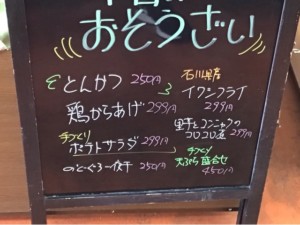 本日の
おそうざい
とんかつ 250円
鶏からあげ 299円
手づくり
ポテトサラダ 299円
のどぐろ一夜干 250円
石川県産
イワシフライ
299円
里芋とコンニャクの
コロコロ煮 299円
手づくり
天ぷら盛合せ
450円